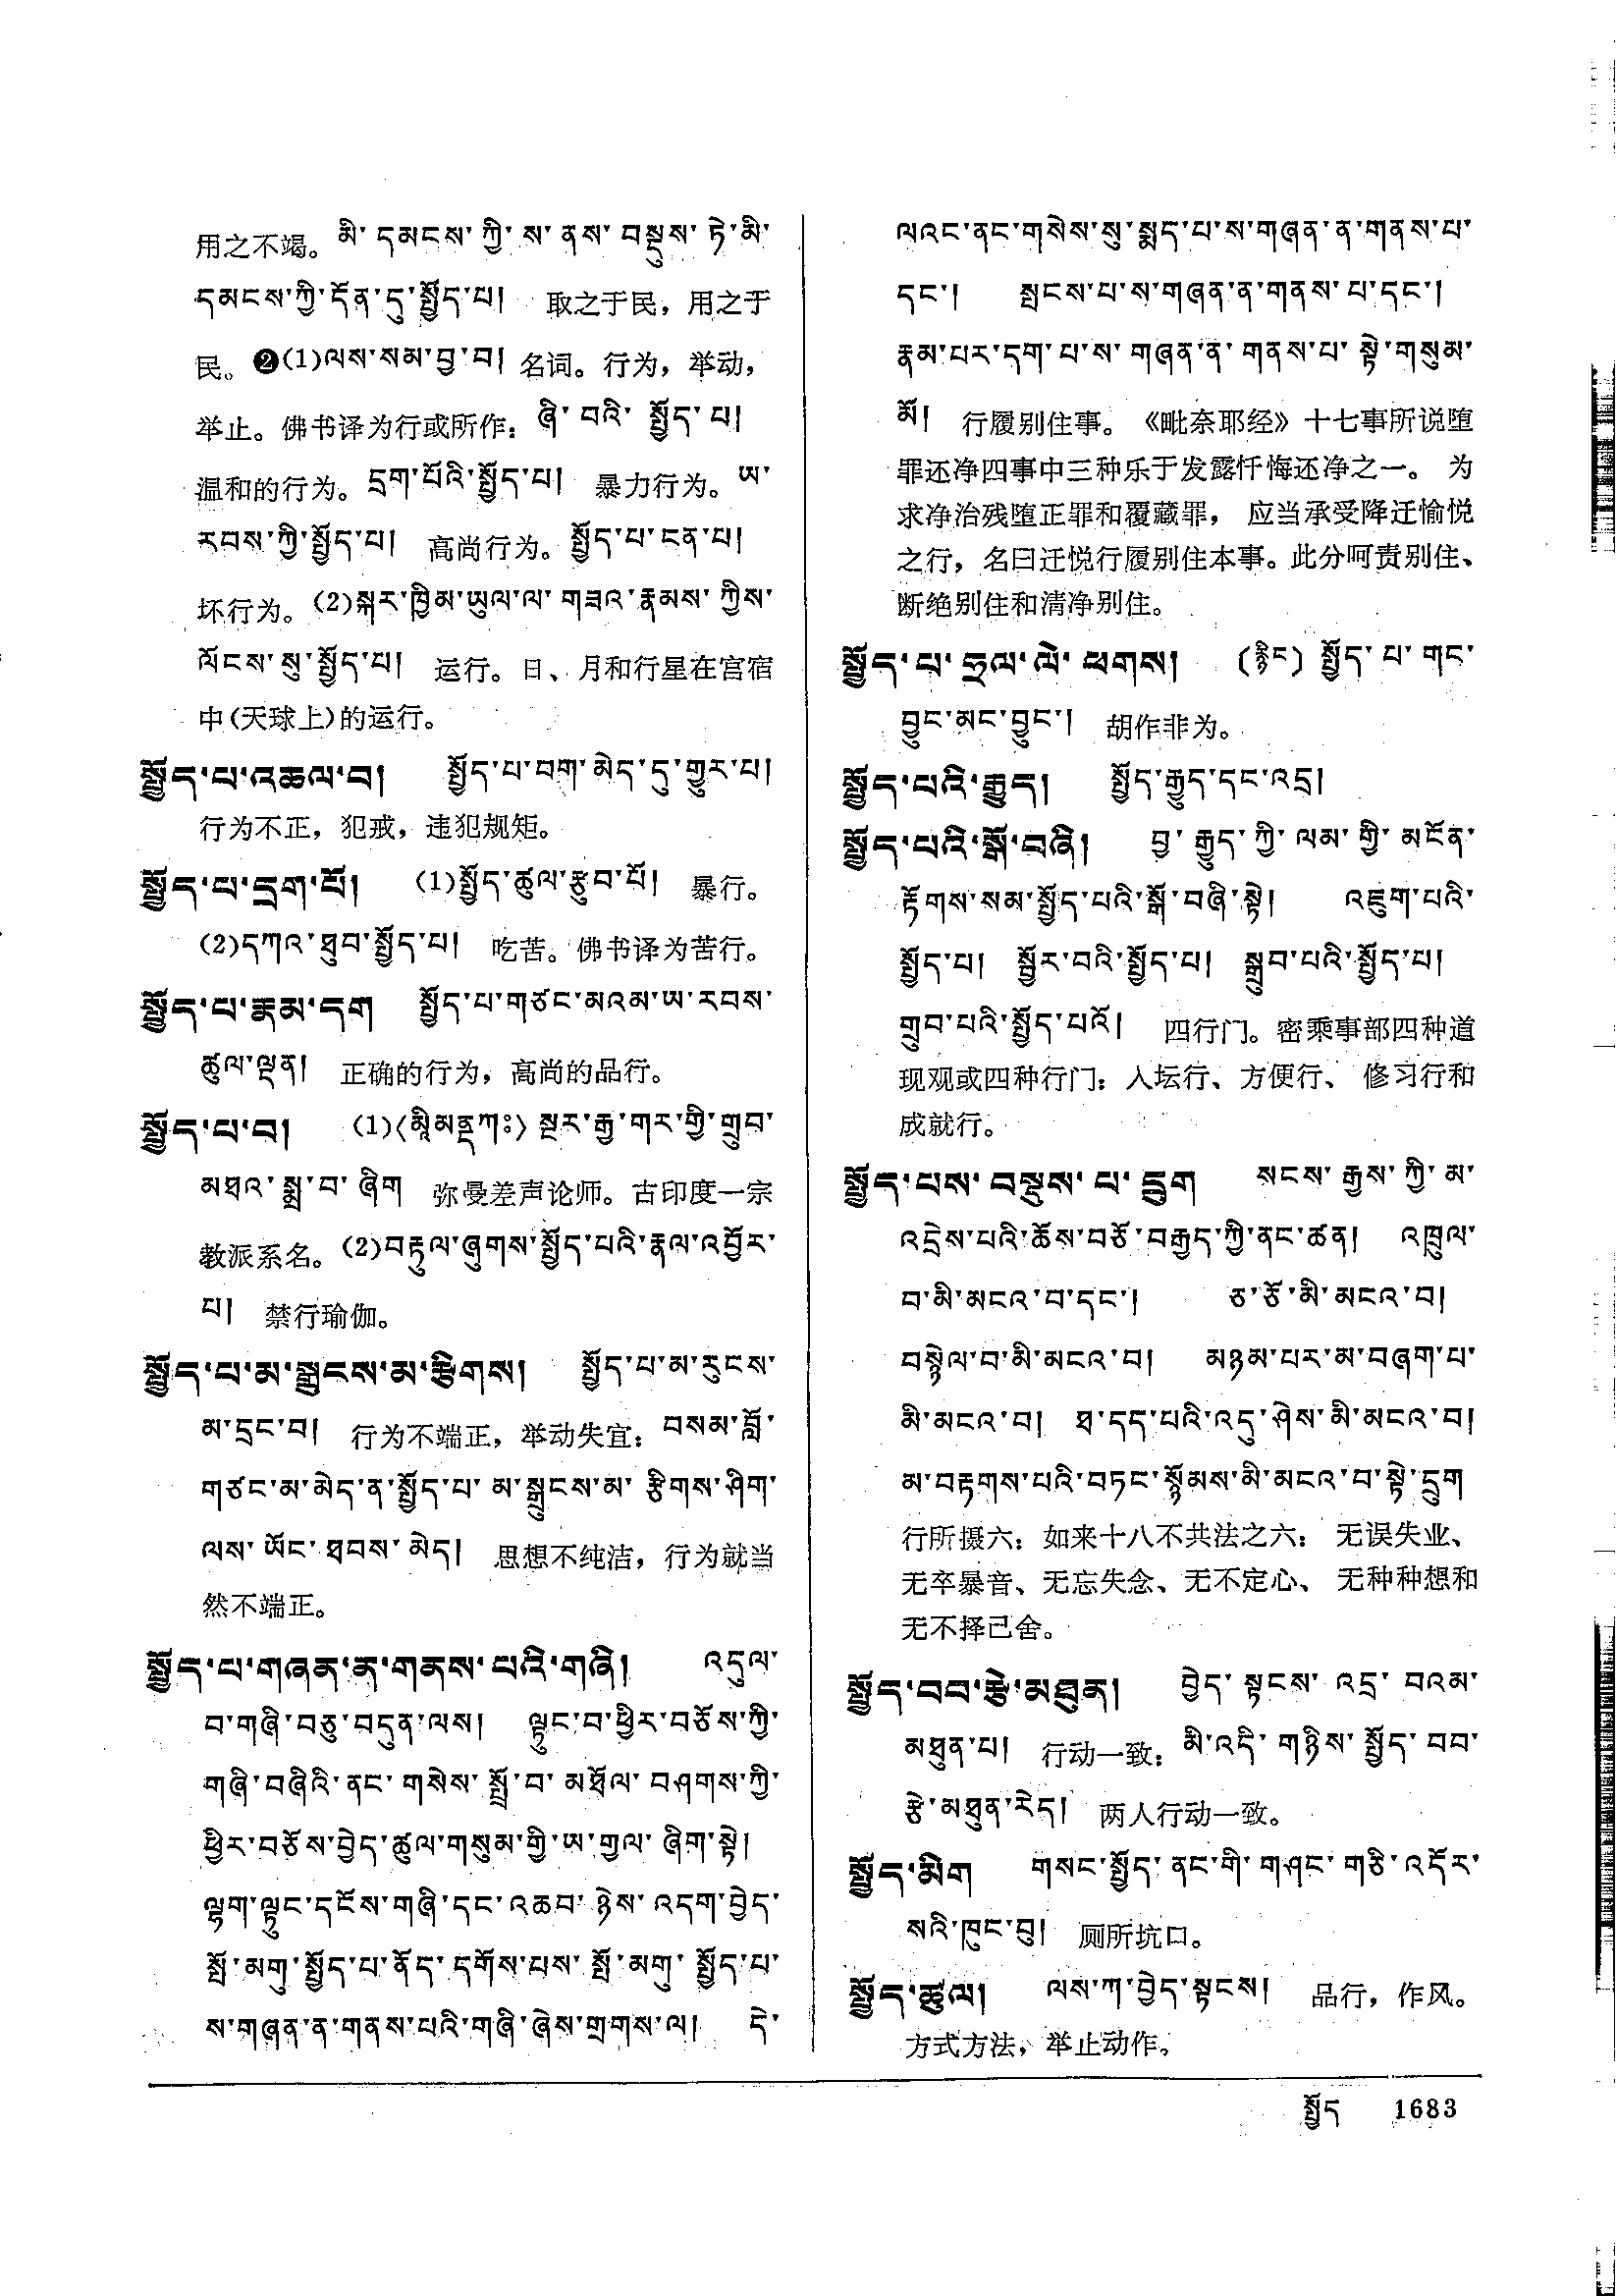 用之不竭。མི་དམངས་ཀྱི་ས་ནས་བསྡུས་ཏེ་མི་
དམངས་ཀྱི་དོན་དུ་སྤྱོད་པ། 取之于民，用之于
民。❷(1)ལས་སམ་བྱ་བ། 名词。行为，举动，
举止。佛书译为行或所作：ཞི་བའི་སྤྱོད་པ།
温和的行为。དྲག་པོའི་སྤྱོད་པ། 暴力行为。ཡ་
རབས་ཀྱི་སྤྱོད་པ། 高尚行为。སྤྱོད་པ་ངན་པ།
坏行为。(2)སྐར་ཁྱིམ་ཡུལ་ལ་གཟའ་རྣམས་ཀྱིས་
ལོངས་སུ་སྤྱོད་པ། 运行。日、月和行星在宫宿
中(天球上)的运行。
སྤྱོད་པ་འཆལ་བ། སྤྱོད་པ་བག་མེད་དུ་གྱུར་པ།
行为不正，犯戒，违犯规矩。
སྤྱོད་པ་དྲག་པོ། (1)སྤྱོད་ཚུལ་རྩུབ་པོ། 暴行。
(2)དཀའ་ཐུབ་སྤྱོད་པ། 吃苦。佛书译为苦行。
སྤྱོད་པ་རྣམ་དག སྤྱོད་པ་གཙང་མའམ་ཡ་རབས་
ཚུལ་ལྡན། 正确的行为，高尚的品行。
སྤྱོད་པ་བ། (1)〈མཱིམནྡཀཿ〉སྔར་རྒྱ་གར་གྱི་གྲུབ་
མཐའ་སྨྲ་བ་ཞིག 弥曼差声论师。古印度一宗
教派系名。(2)བརྟུལ་ཞུགས་སྤྱོད་པའི་རྣལ་འབྱོར་
པ། 禁行瑜伽。
སྤྱོད་པ་མ་སྲུངས་མ་རྩིགས། སྤྱོད་པ་མ་རུངས་
མ་དྲང་བ། 行为不端正，举动失宜：བསམ་བློ་
གཙང་མ་མེད་ན་སྤྱོད་པ་མ་སྲུངས་མ་རྩིགས་ཤིག་
ལས་ཡོང་ཐབས་མེད། 思想不纯洁，行为就当
然不端正。
སྤྱོད་པ་གཞན་ན་གནས་པའི་གཞི། འདུལ་
བ་གཞི་བཅུ་བདུན་ལས། ལྟུང་བ་ཕྱིར་བཅོས་ཀྱི་
གཞི་བཞིའི་ནང་གསེས་སྤྲོ་བ་མཐོལ་བཤགས་ཀྱི་
ཕྱིར་བཅོས་བྱེད་ཚུལ་གསུམ་གྱི་ཡ་གྱལ་ཞིག་སྟེ།
ལྷག་ལྟུང་དངོས་གཞི་དང་འཆབ་ཉེས་འདག་བྱེད་
སྤོ་མགུ་སྤྱོད་པ་ནོད་དགོས་པས་སྤོ་མགུ་སྤྱོད་པ་
ས་གཞན་ན་གནས་པའི་གཞི་ཞེས་གྲགས་ལ། དེ་
ལའང་ནང་གསེས་སུ་སྨད་པ་ས་གཞན་ན་གནས་པ་
དང་། སྤངས་པ་ས་གཞན་ན་གནས་པ་དང་།
རྣམ་པར་དག་པ་ས་གཞན་ན་གནས་པ་སྟེ་གསུམ་
མོ། 行履别住事。《毗奈耶经》十七事所说堕
罪还净四事中三种乐于发露忏悔还净之一。 为
求净治残堕正罪和覆藏罪， 应当承受降迁愉悦
之行，名曰迁悦行履别住本事。此分呵责别住、
断绝别住和清净别住。
སྤྱོད་པ་ཧྲལ་ལེ་ཕགས། (རྙིང) སྤྱོད་པ་གང་
བྱུང་མང་བྱུང་། 胡作非为。
སྤྱོད་པའི་རྒྱུད། སྤྱོད་རྒྱུད་དང་འདྲ།
སྤྱོད་པའི་སྒོ་བཞི། བྱ་རྒྱུད་ཀྱི་ལམ་གྱི་མངོན་
རྟོགས་སམ་སྤྱོད་པའི་སྒོ་བཞི་སྟེ། འཇུག་པའི་
སྤྱོད་པ། སྦྱོར་བའི་སྤྱོད་པ། སྒྲུབ་པའི་སྤྱོད་པ།
གྲུབ་པའི་སྤྱོད་པའོ། 四行门。密乘事部四种道
现观或四种行门：入坛行、方便行、 修习行和
成就行。
སྤྱོད་པས་བསྡུས་པ་དྲུག སངས་རྒྱས་ཀྱི་མ་
འདྲེས་པའི་ཆོས་བཅོ་བརྒྱད་ཀྱི་ནང་ཚན། འཁྲུལ་
བ་མི་མངའ་བ་དང་། ཅ་ཅོ་མི་མངའ་བ།
བསྙེལ་བ་མི་མངའ་བ། མཉམ་པར་མ་བཞག་པ་
མི་མངའ་བ། ཐ་དད་པའི་འདུ་ཤེས་མི་མངའ་བ།
མ་བརྟགས་པའི་བཏང་སྙོམས་མི་མངའ་བ་སྟེ་དྲུག
行所摄六：如来十八不共法之六： 无误失业、
无卒暴音、无忘失念、无不定心、 无种种想和
无不择已舍。
སྤྱོད་བབ་རྩེ་མཐུན། བྱེད་སྟངས་འདྲ་བའམ་
མཐུན་པ། 行动一致：མི་འདི་གཉིས་སྤྱོད་བབ་
རྩེ་མཐུན་རེད། 两人行动一致。
སྤྱོད་མིག གསང་སྤྱོད་ནང་གི་གཤང་གཅི་འདོར་
སའི་ཁུང་བུ། 厕所坑口。
སྤྱོད་ཚུལ། ལས་ཀ་བྱེད་སྟངས། 品行，作风。
方式方法，举止动作。
སྤྱོད 1683